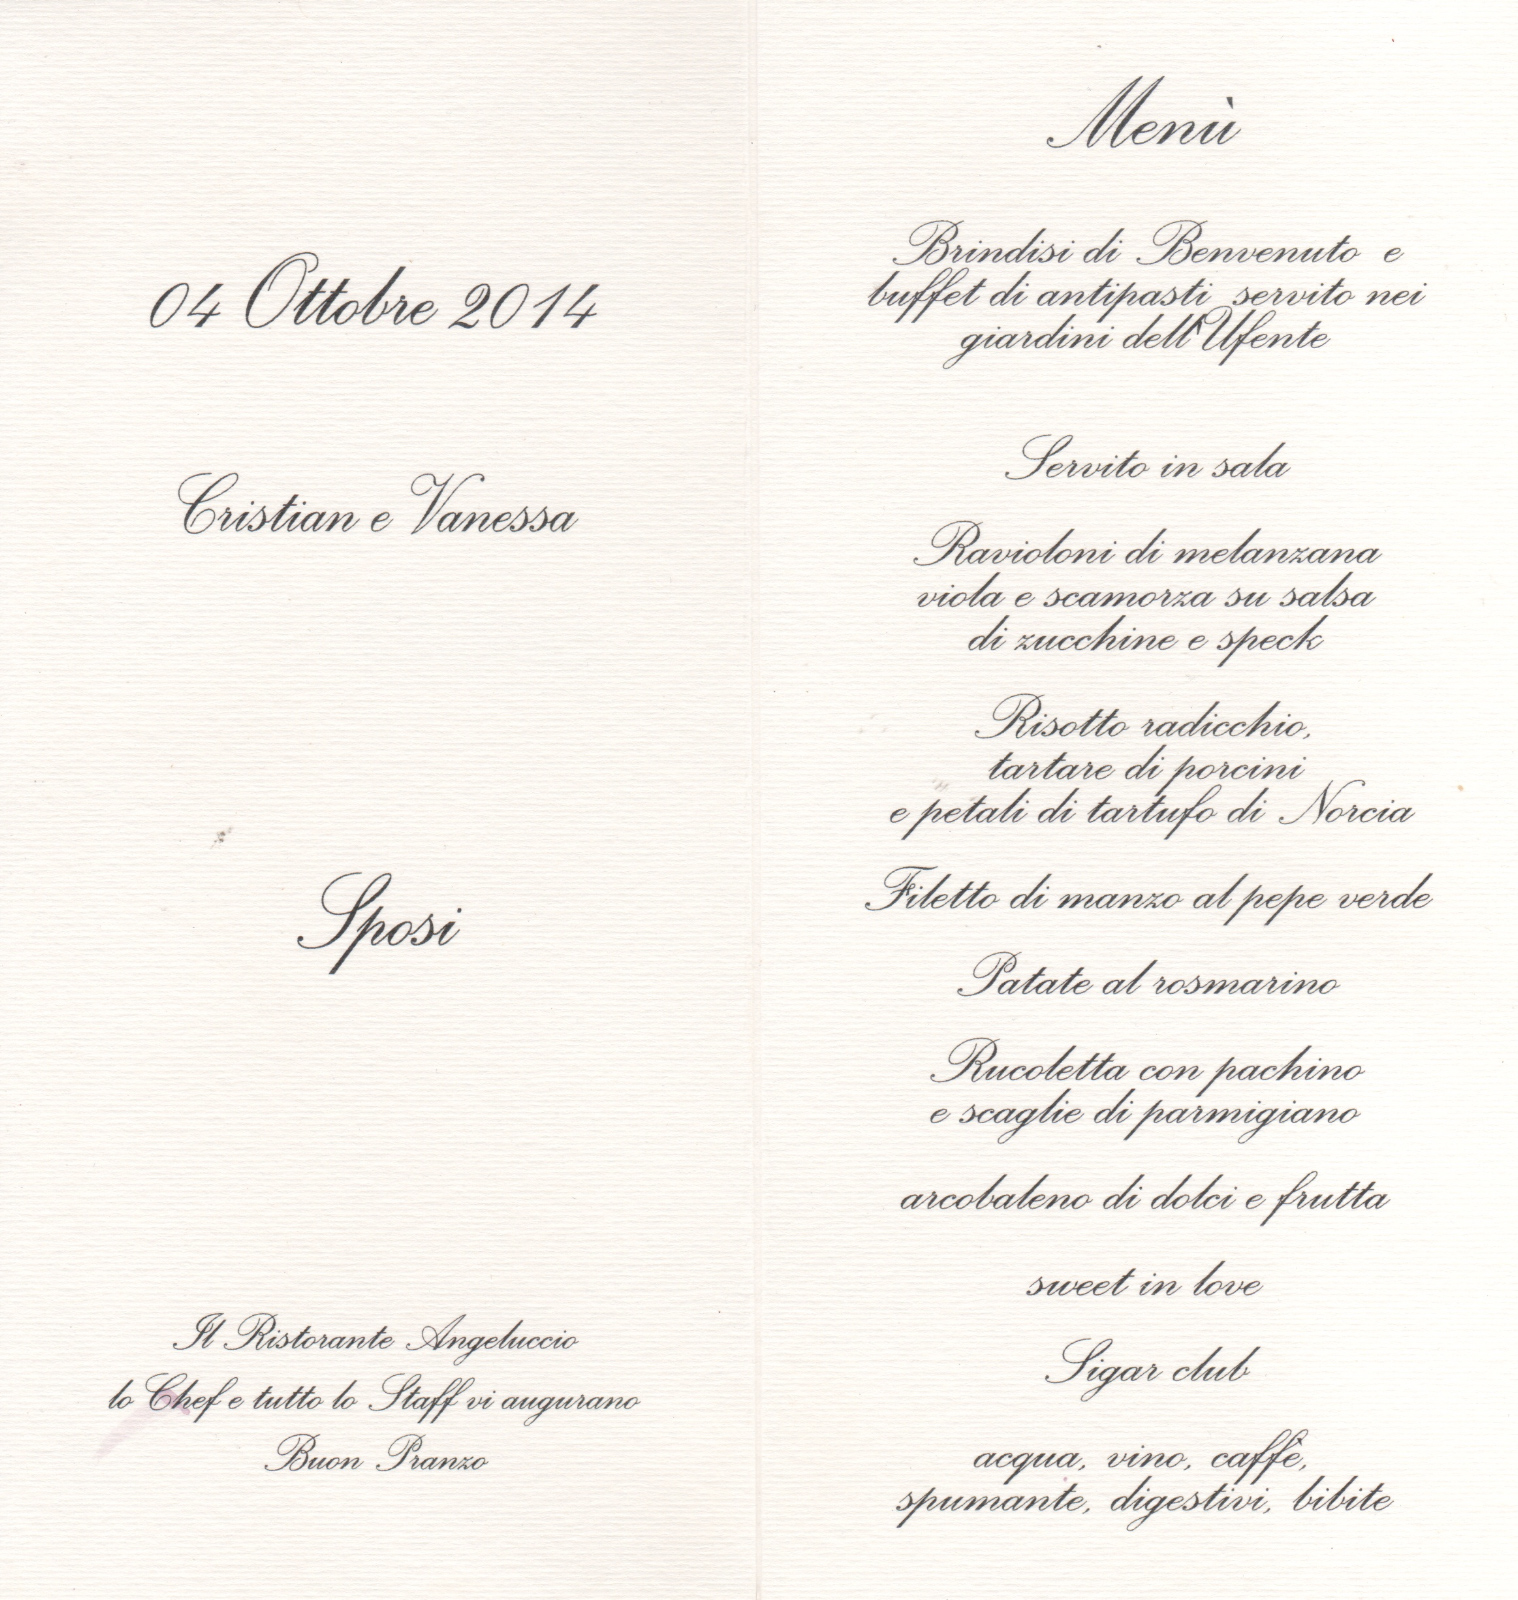 04 Ottobre 2014
Cristian e Vanessa
Sposi
Il Ristorante Angeluccio
lo Chef e tutto lo Staff vi augurano
Buon Pranzo
Menù
Brindisi di Benvenuto e
buffet di antipasti servito nei
giardini dell'Ufente
Servito in sala
Ravioloni di melanzana
viola e scamorza su salsa
di zucchine e speck
Risotto radicchio,
tartare di porcini
e petali di tartufo di Norcia
Filetto di manzo al pepe verde
Patate al rosmarino
Rucoletta con pachino
e scaglie di parmigiano
arcobaleno di dolci e frutta
sweet in love
Sigar club
acqua, vino, caffè,
spumante, digestivi, bibite